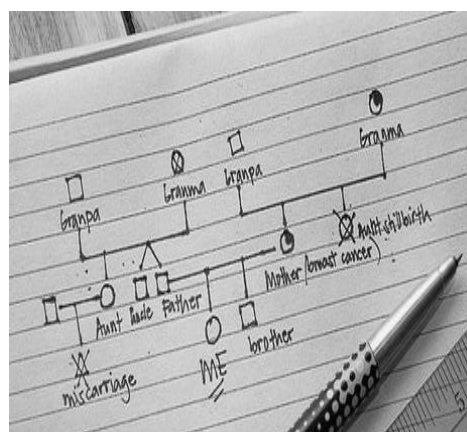 Granma
Granma
Granpa
Granpa
Aunt stillbirth
Mother (breast cancer)
Aunt Uncle Father
brother
ME
miscarriage
5